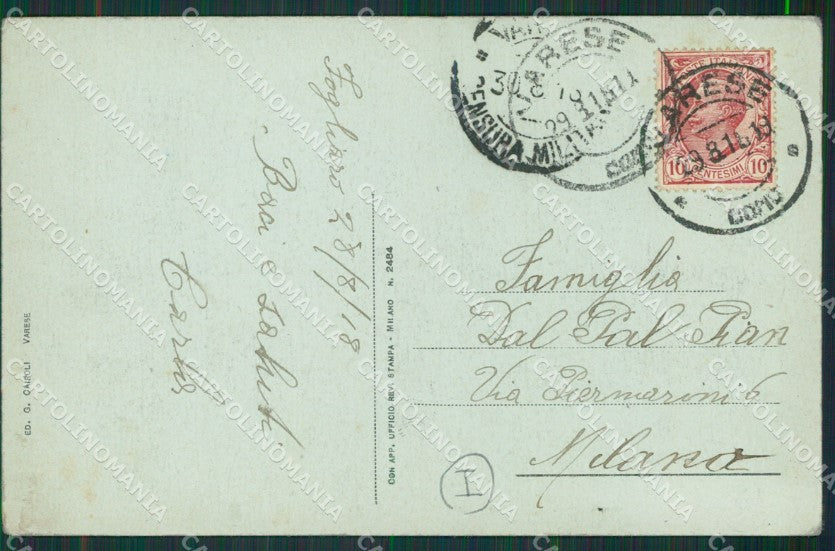 Fogliaro 28/8/18
Baci e saluti
Carlo
ED. G. CAIROLI VARESE
CON APP. UFFICIO REV. STAMPA - MILANO N. 2484
VARESE
30 8 18
CENSURA MILITARE
VARESE
29 8 18
COMO
POSTE ITALIANE
10 CENTESIMI 10
VARESE
29 8 18 18
COMO
Famiglia
Dal Pal Pian
Via Piermarini 6
Milano
I
CARTOLINOMANIA